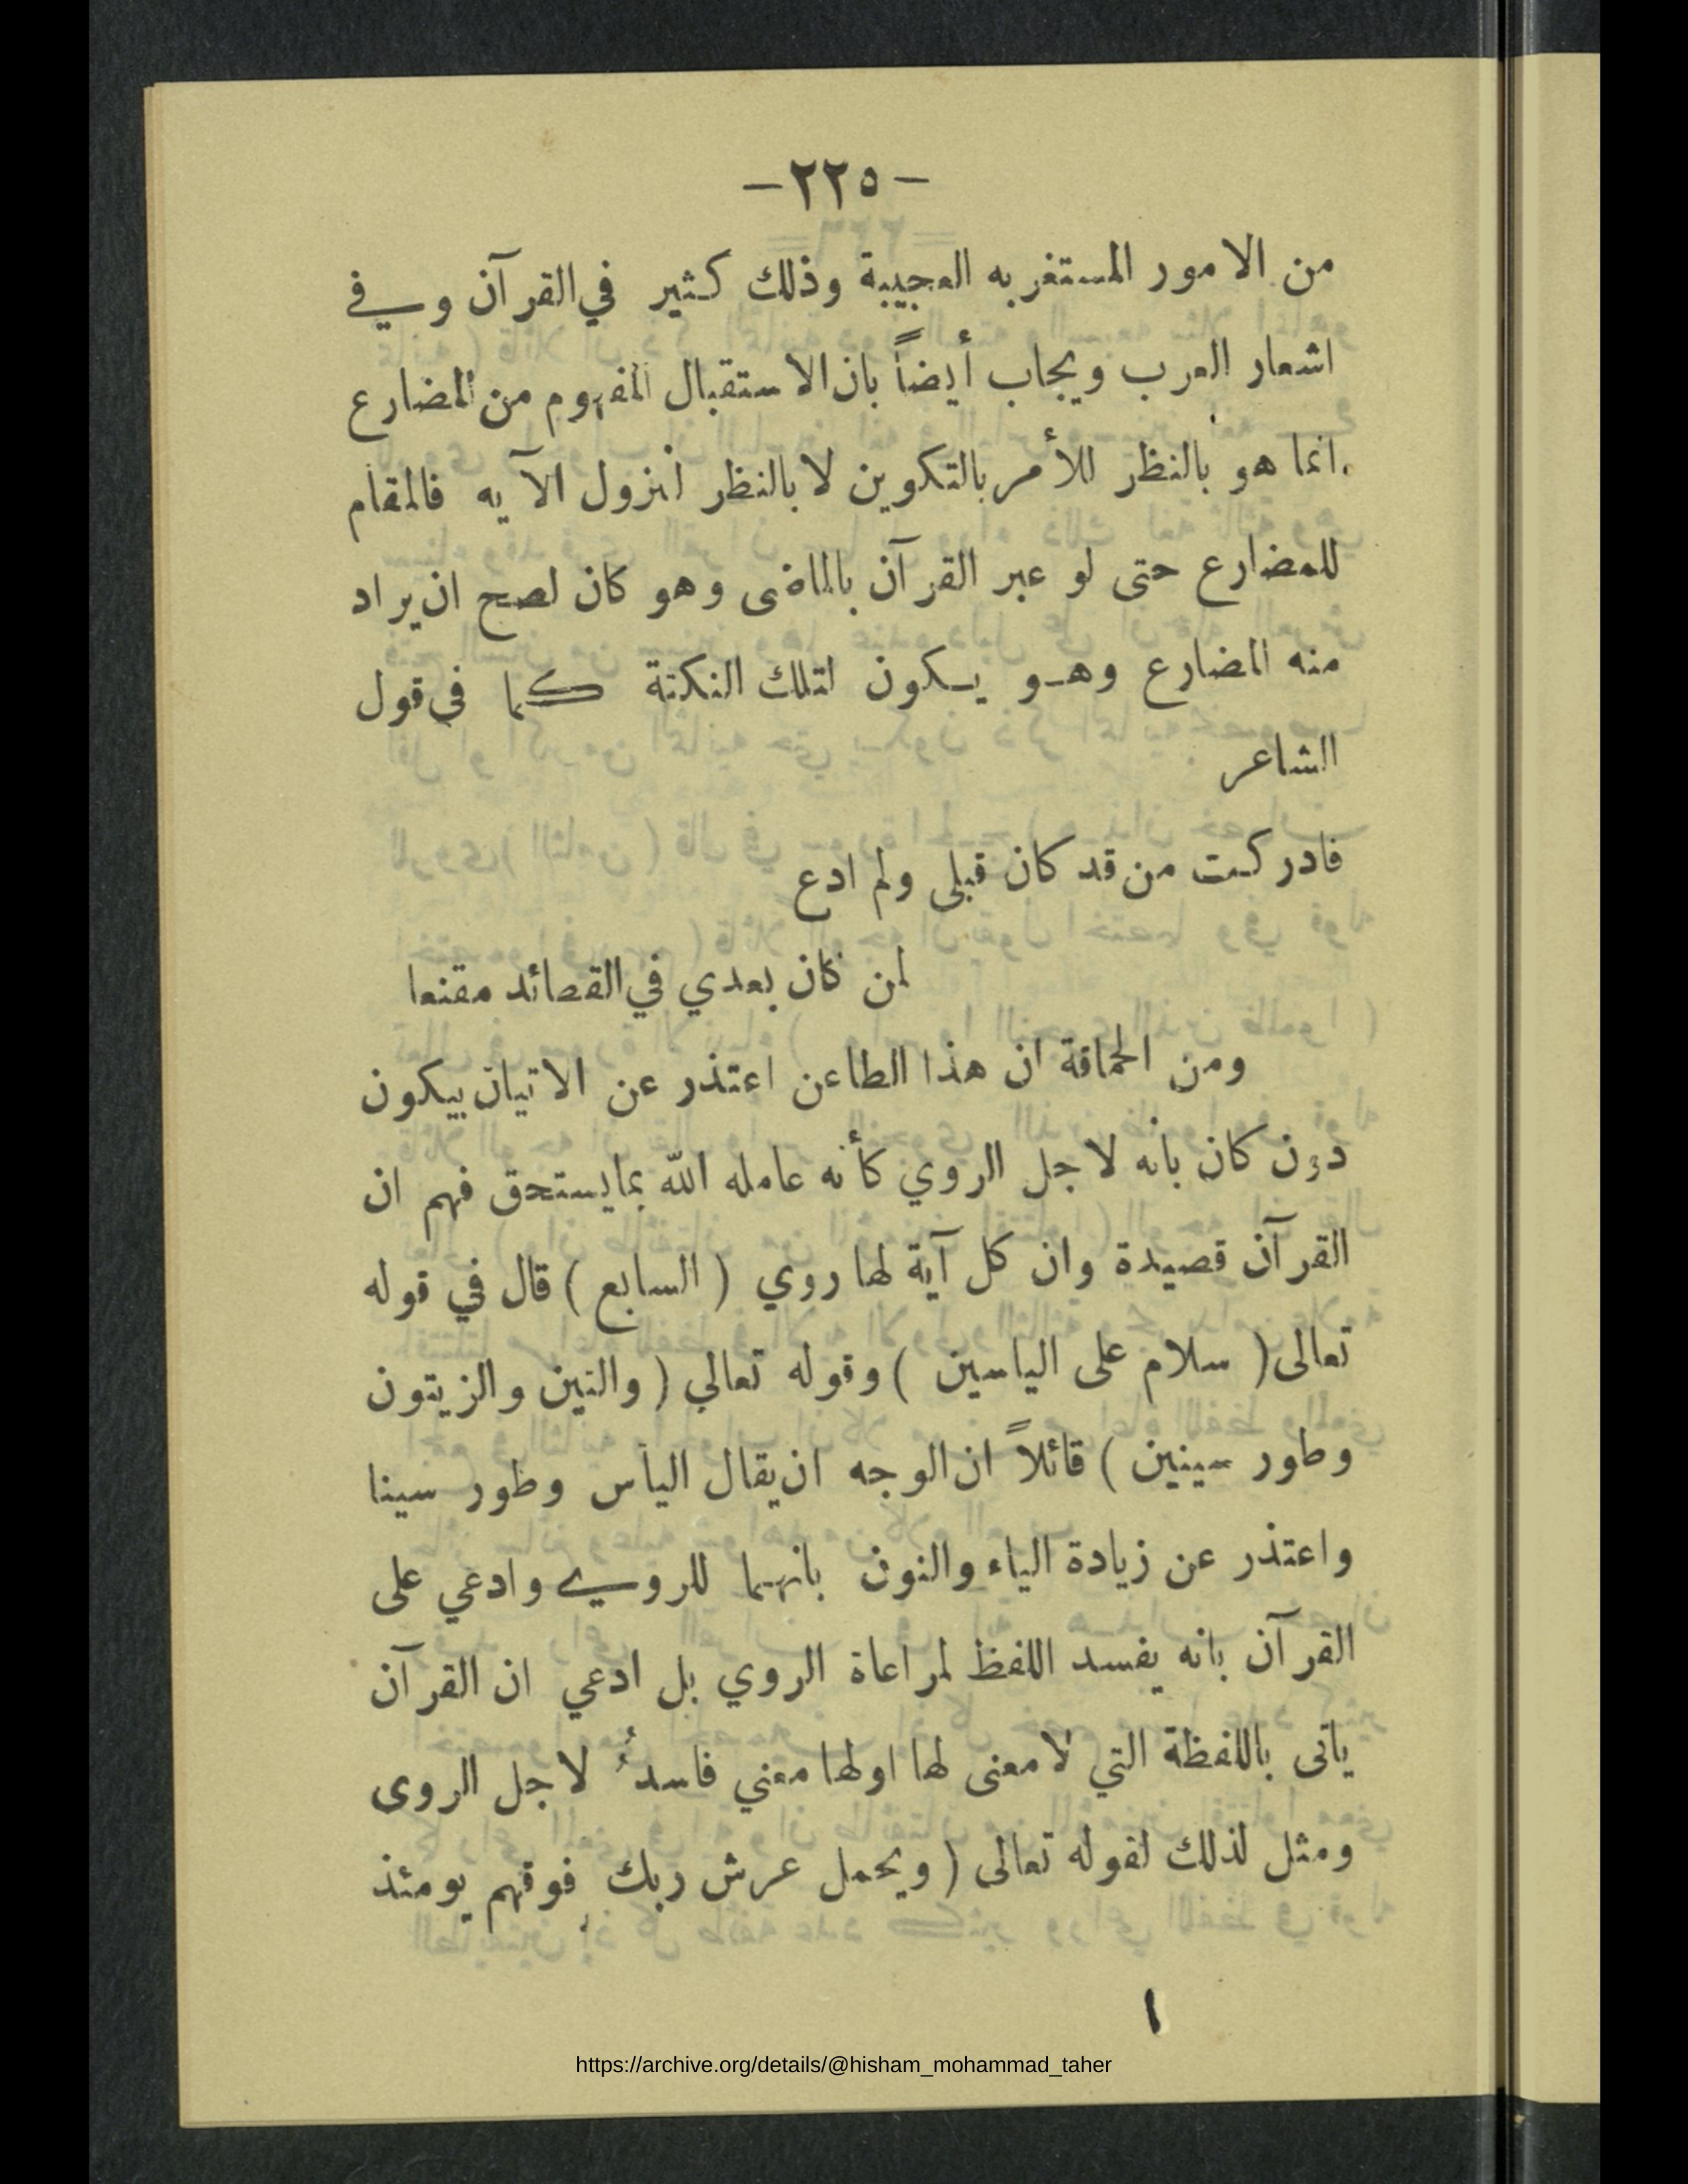 -٢٢٥-
من الامور المستغربه العجيبة وذلك كثير في القرآن وفي
اشعار العرب ويجاب أيضاً بان الاستقبال المفهوم من المضارع
انما هو بالنظر للأمر بالتكوين لا بالنظر لنزول الآيه فالمقام
للمضارع حتى لو عبر القرآن بالماضى وهو كان لصح ان يراد
منه المضارع وهو يكون لتلك النكتة كما فى قول
الشاعر
فادركت من قد كان قبلى ولم ادع
لمن كان بعدي في القصائد مقنعا
ومن الحماقة ان هذا الطاعن اعتذر عن الاتيان بيكون
دون كان بانه لاجل الروي كأنه عامله الله بما يستحق فهم ان
القرآن قصيدة وان كل آية لها روي ( السابع ) قال في قوله
تعالى ( سلام على الياسين ) وقوله تعالي ( والتين والزيتون
وطور سينين ) قائلاً ان الوجه ان يقال الياس وطور سينا
واعتذر عن زيادة الياء والنون بانهما للروي وادعي على
القرآن بانه يفسد اللفظ لمراعاة الروي بل ادعي ان القرآن
ياتى باللفظة التي لا معنى لها اولها معني فاسد لاجل الروى
ومثل لذلك لقوله تعالى ( ويحمل عرش ربك فوقهم يومئذ
١
https://archive.org/details/@hisham_mohammad_taher